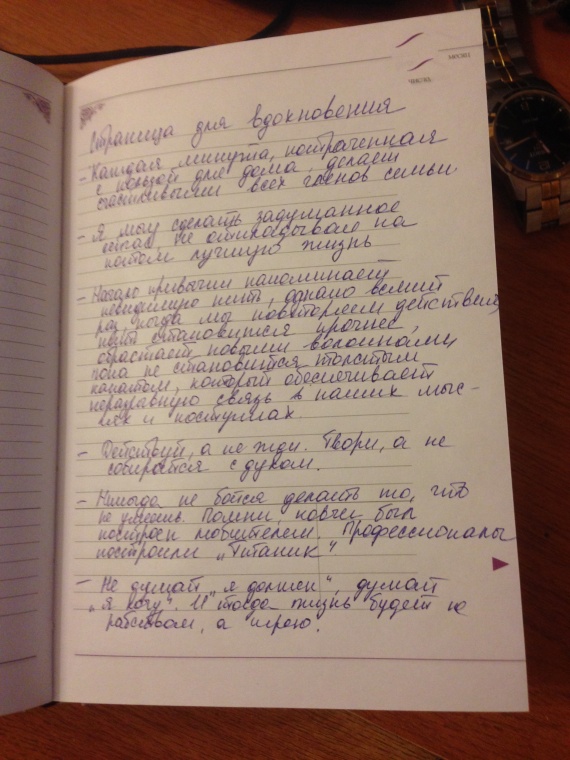 месяц
число
Страница для вдохновения
- Каждая минута, потраченная
с пользой для дома, делает
счастливыми всех членов семьи
- Я могу сделать задуманное
сейчас, не откладывая на
потом лучшую жизнь
- Начало привычки напоминает
невидимую нить, однако всякий
раз, когда мы повторяем действия,
нить становится прочнее,
обрастает новыми волокнами
пока не становится толстым
канатом, который обеспечивает
неразрывную связь в наших мыс-
лях и поступках.
- Действуй, а не жди. Твори, а не
собирайся с духом.
- Никогда не бойся делать то, что
не умеешь. Помни, ковчег был
построен любителем. Профессионалы
построили „Титаник“
- Не думай „я должен“, думай
„я хочу“. И тогда жизнь будет не
рабством, а игрою.